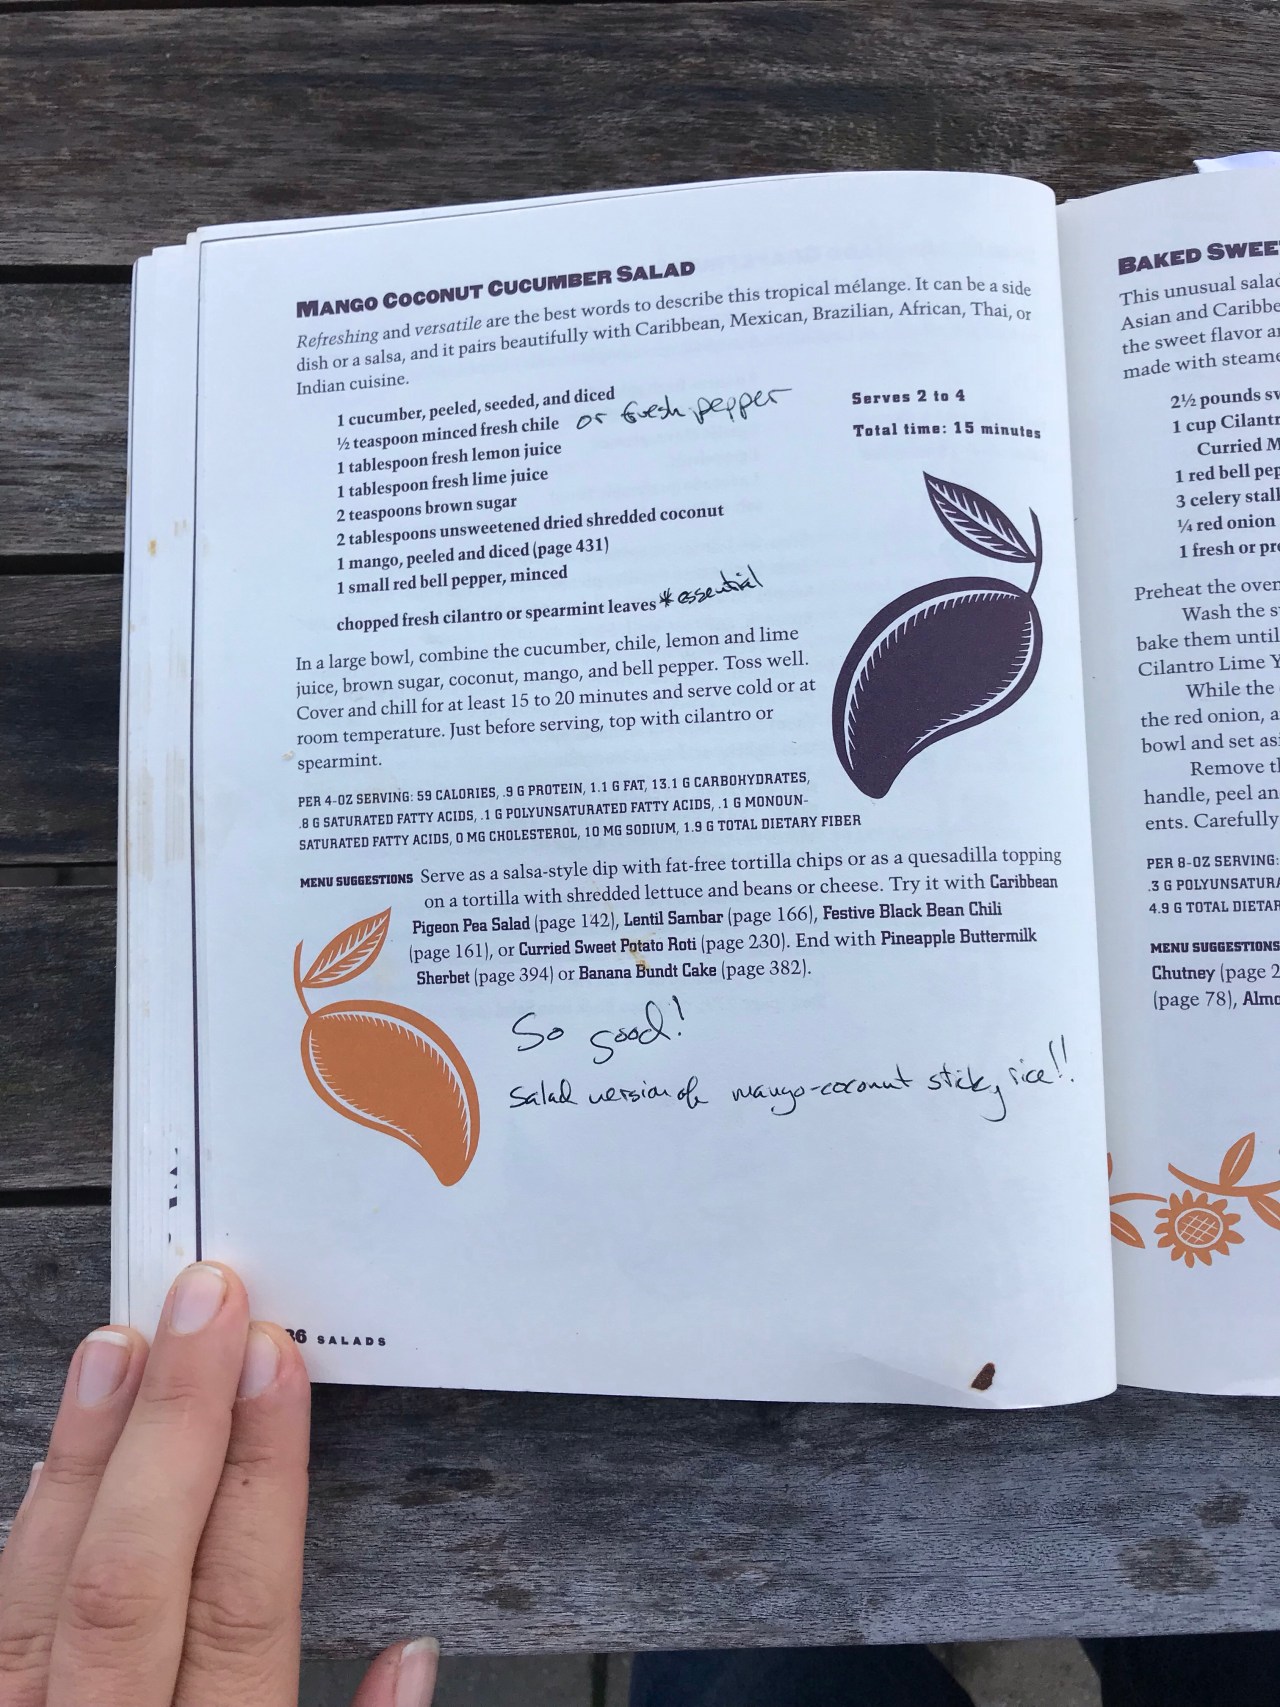 MANGO COCONUT CUCUMBER SALAD
Refreshing and versatile are the best words to describe this tropical mélange. It can be a side
dish or a salsa, and it pairs beautifully with Caribbean, Mexican, Brazilian, African, Thai, or
Indian cuisine.
1 cucumber, peeled, seeded, and diced
½ teaspoon minced fresh chile or fresh pepper
1 tablespoon fresh lemon juice
1 tablespoon fresh lime juice
2 teaspoons brown sugar
2 tablespoons unsweetened dried shredded coconut
1 mango, peeled and diced (page 431)
1 small red bell pepper, minced
chopped fresh cilantro or spearmint leaves *essential
Serves 2 to 4
Total time: 15 minutes
In a large bowl, combine the cucumber, chile, lemon and lime
juice, brown sugar, coconut, mango, and bell pepper. Toss well.
Cover and chill for at least 15 to 20 minutes and serve cold or at
room temperature. Just before serving, top with cilantro or
spearmint.
PER 4-OZ SERVING: 59 CALORIES, .9 G PROTEIN, 1.1 G FAT, 13.1 G CARBOHYDRATES,
.8 G SATURATED FATTY ACIDS, .1 G POLYUNSATURATED FATTY ACIDS, .1 G MONOUN-
SATURATED FATTY ACIDS, 0 MG CHOLESTEROL, 10 MG SODIUM, 1.9 G TOTAL DIETARY FIBER
MENU SUGGESTIONS Serve as a salsa-style dip with fat-free tortilla chips or as a quesadilla topping
on a tortilla with shredded lettuce and beans or cheese. Try it with Caribbean
Pigeon Pea Salad (page 142), Lentil Sambar (page 166), Festive Black Bean Chili
(page 161), or Curried Sweet Potato Roti (page 230). End with Pineapple Buttermilk
Sherbet (page 394) or Banana Bundt Cake (page 382).
So good!
Salad version of mango-coconut sticky rice!!
36 SALADS
BAKED SWEE
This unusual salad
Asian and Caribbe
the sweet flavor a
made with steame
2½ pounds sw
1 cup Cilantr
Curried M
1 red bell pep
3 celery stall
¼ red onion
1 fresh or pre
Preheat the oven
Wash the s
bake them until
Cilantro Lime Y
While the
the red onion, a
bowl and set asi
Remove th
handle, peel an
ents. Carefully
PER 8-OZ SERVING:
.3 G POLYUNSATURA
4.9 G TOTAL DIETAR
MENU SUGGESTIONS
Chutney (page 2
(page 78), Almo